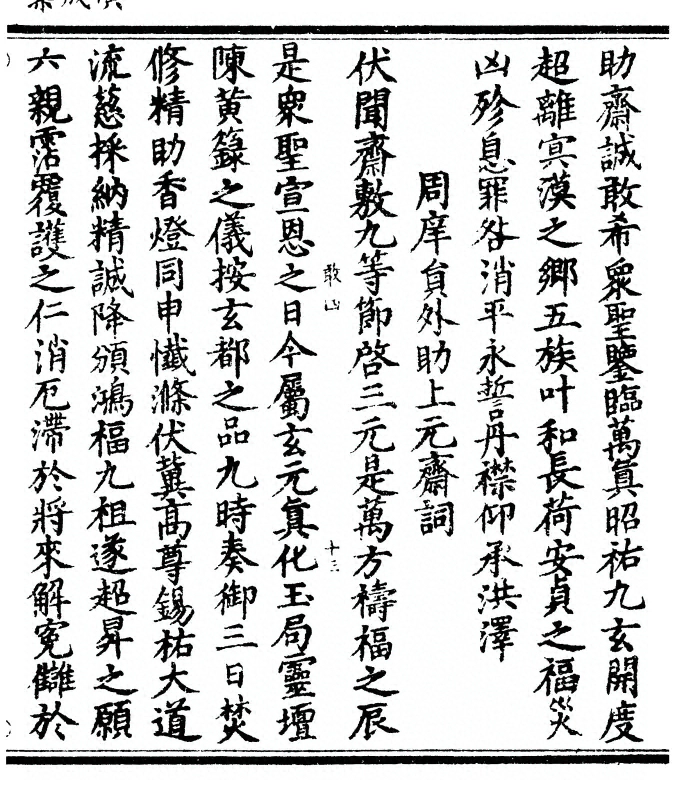 助齋誠敢希衆聖鑒臨萬眞昭祐九玄開度
超離冥漠之鄉五族叶和長荷安貞之福災
凶殄息罪咎消平永誓丹襟仰承洪澤
周庠員外助上元齋詞
伏聞齋敷九等節啓三元是萬方禱福之辰
敢凶
十三
是衆聖宣恩之日今屬玄元眞化玉局靈壇
陳黃籙之儀按玄都之品九時奏御三日焚
修精助香燈同申懺滌伏冀高尊錫祐大道
流慈採納精誠降頒鴻福九祖遂超昇之願
六親霑覆護之仁消厄滯於將來解寃讎於